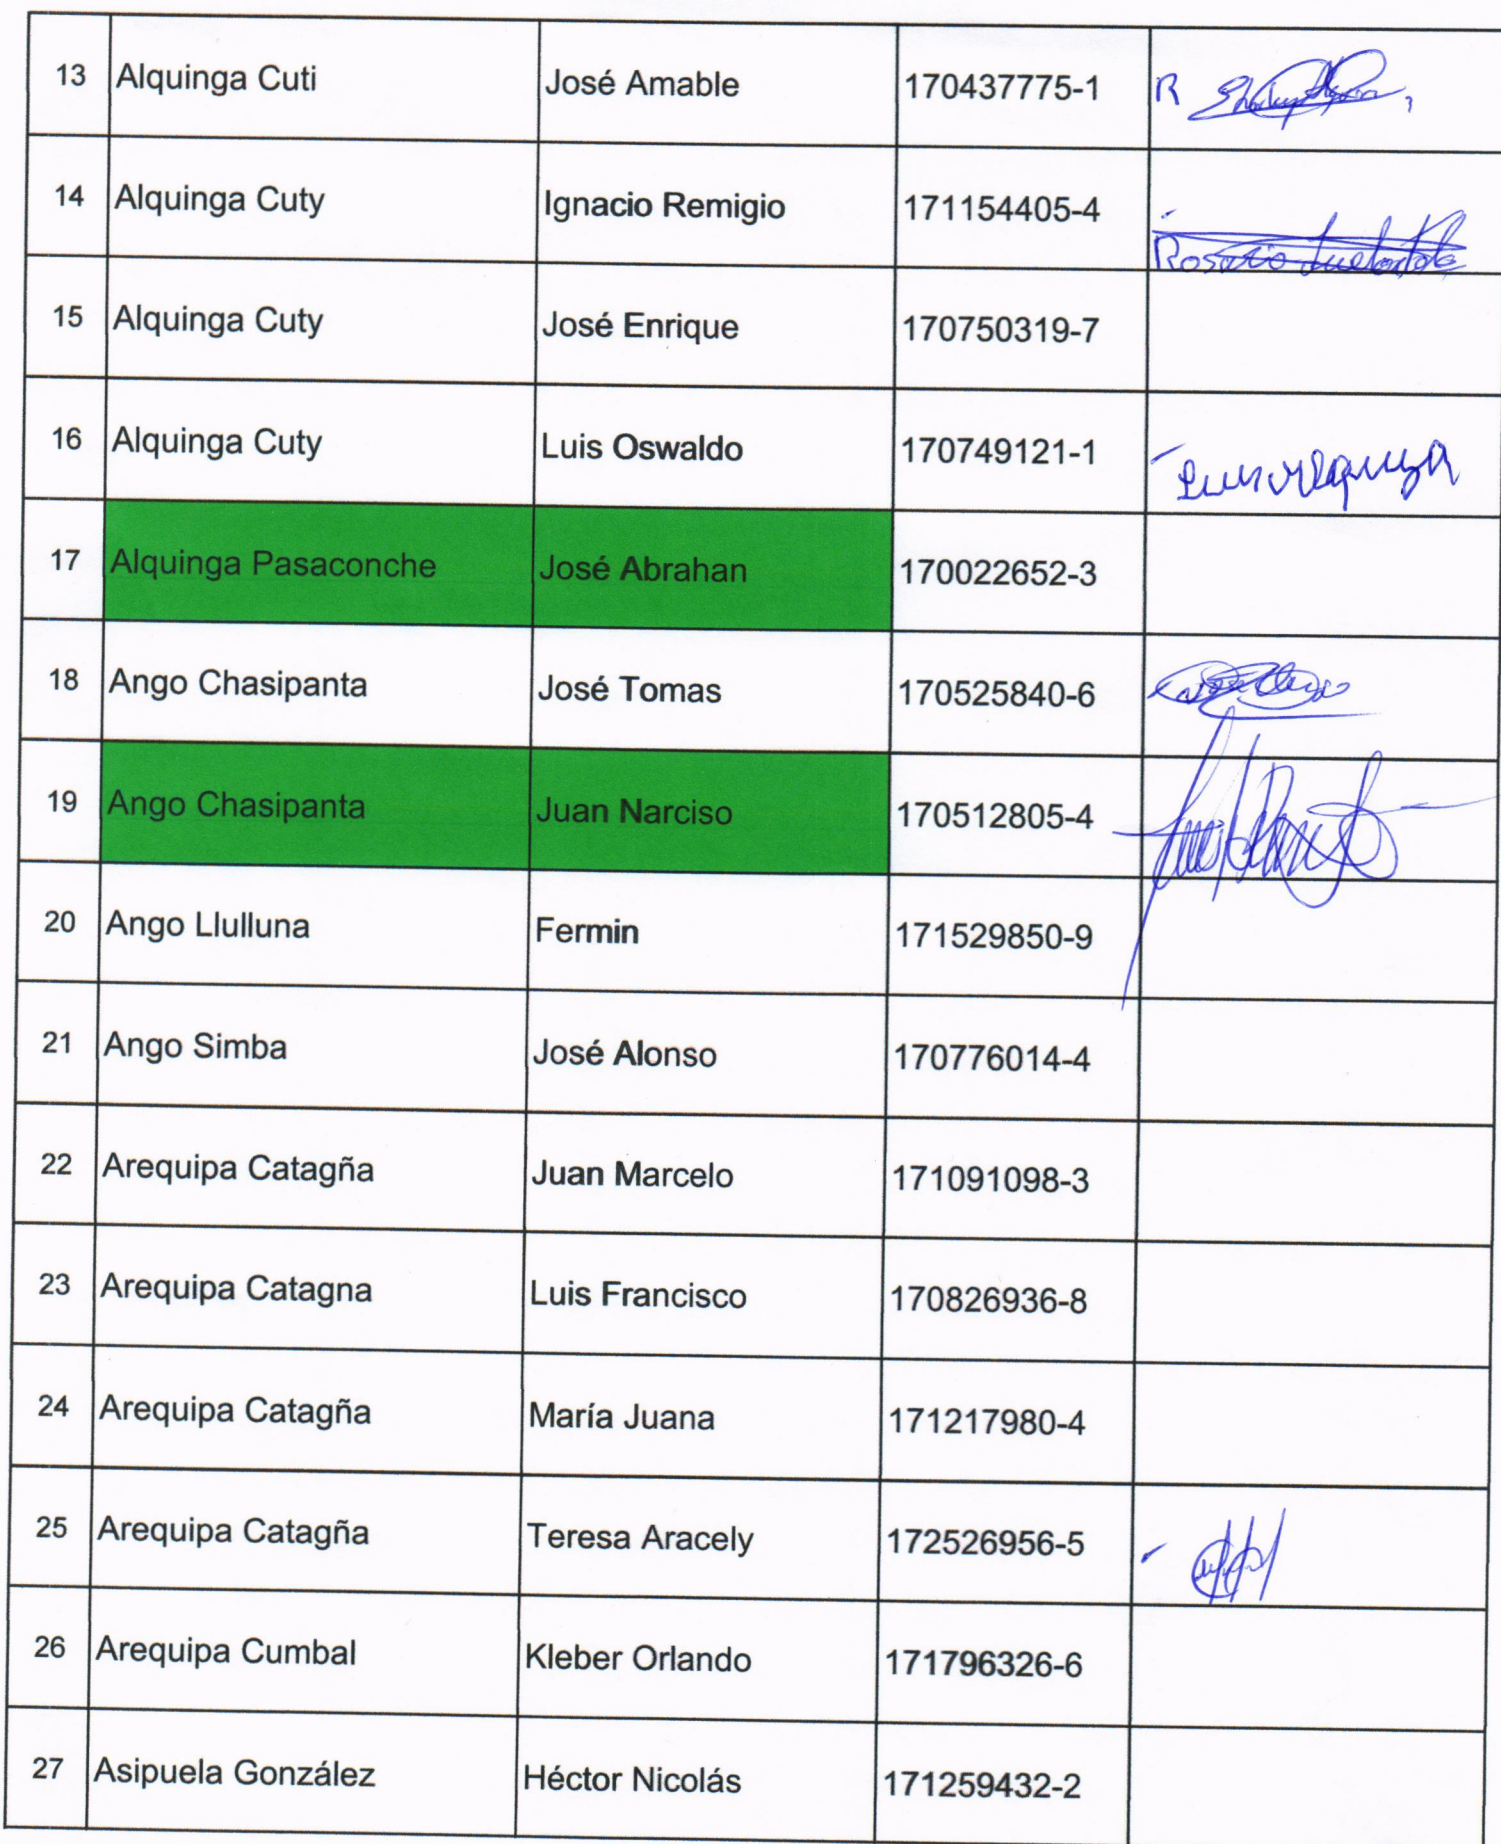 13 Alquinga Cuti José Amable 170437775-1 R
14 Alquinga Cuty Ignacio Remigio 171154405-4 Rosario
15 Alquinga Cuty José Enrique 170750319-7
16 Alquinga Cuty Luis Oswaldo 170749121-1 Luis Alquinga
17 Alquinga Pasaconche José Abrahan 170022652-3
18 Ango Chasipanta José Tomas 170525840-6
19 Ango Chasipanta Juan Narciso 170512805-4
20 Ango Llulluna Fermin 171529850-9
21 Ango Simba José Alonso 170776014-4
22 Arequipa Catagña Juan Marcelo 171091098-3
23 Arequipa Catagna Luis Francisco 170826936-8
24 Arequipa Catagña María Juana 171217980-4
25 Arequipa Catagña Teresa Aracely 172526956-5
26 Arequipa Cumbal Kleber Orlando 171796326-6
27 Asipuela González Héctor Nicolás 171259432-2